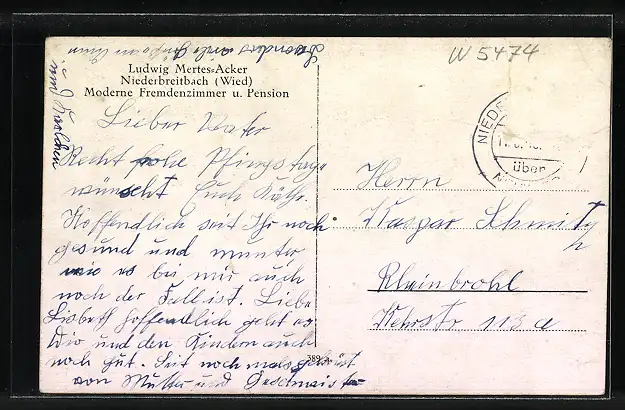 W 5474
besonders viele Grüße an
Ludwig Mertes-Acker
Niederbreitbach (Wied)
Moderne Fremdenzimmer u. Pension
Lieber Vater
Recht frohe Pfingsttage
wünscht Euch Käth.
Hoffendlich seit Ihr noch
gesund und munter
wie es bei mir auch
noch der Fall ist. Liebe
Lisbeth hoffendlich geht es
Dir und den Kindern auch
noch gut. Seit nochmals gegrüsst
von Mutter und
389
NIEDE
über
Herrn
Kaspar Schmidt
Rheinbrohl
Kehrstr 113 a